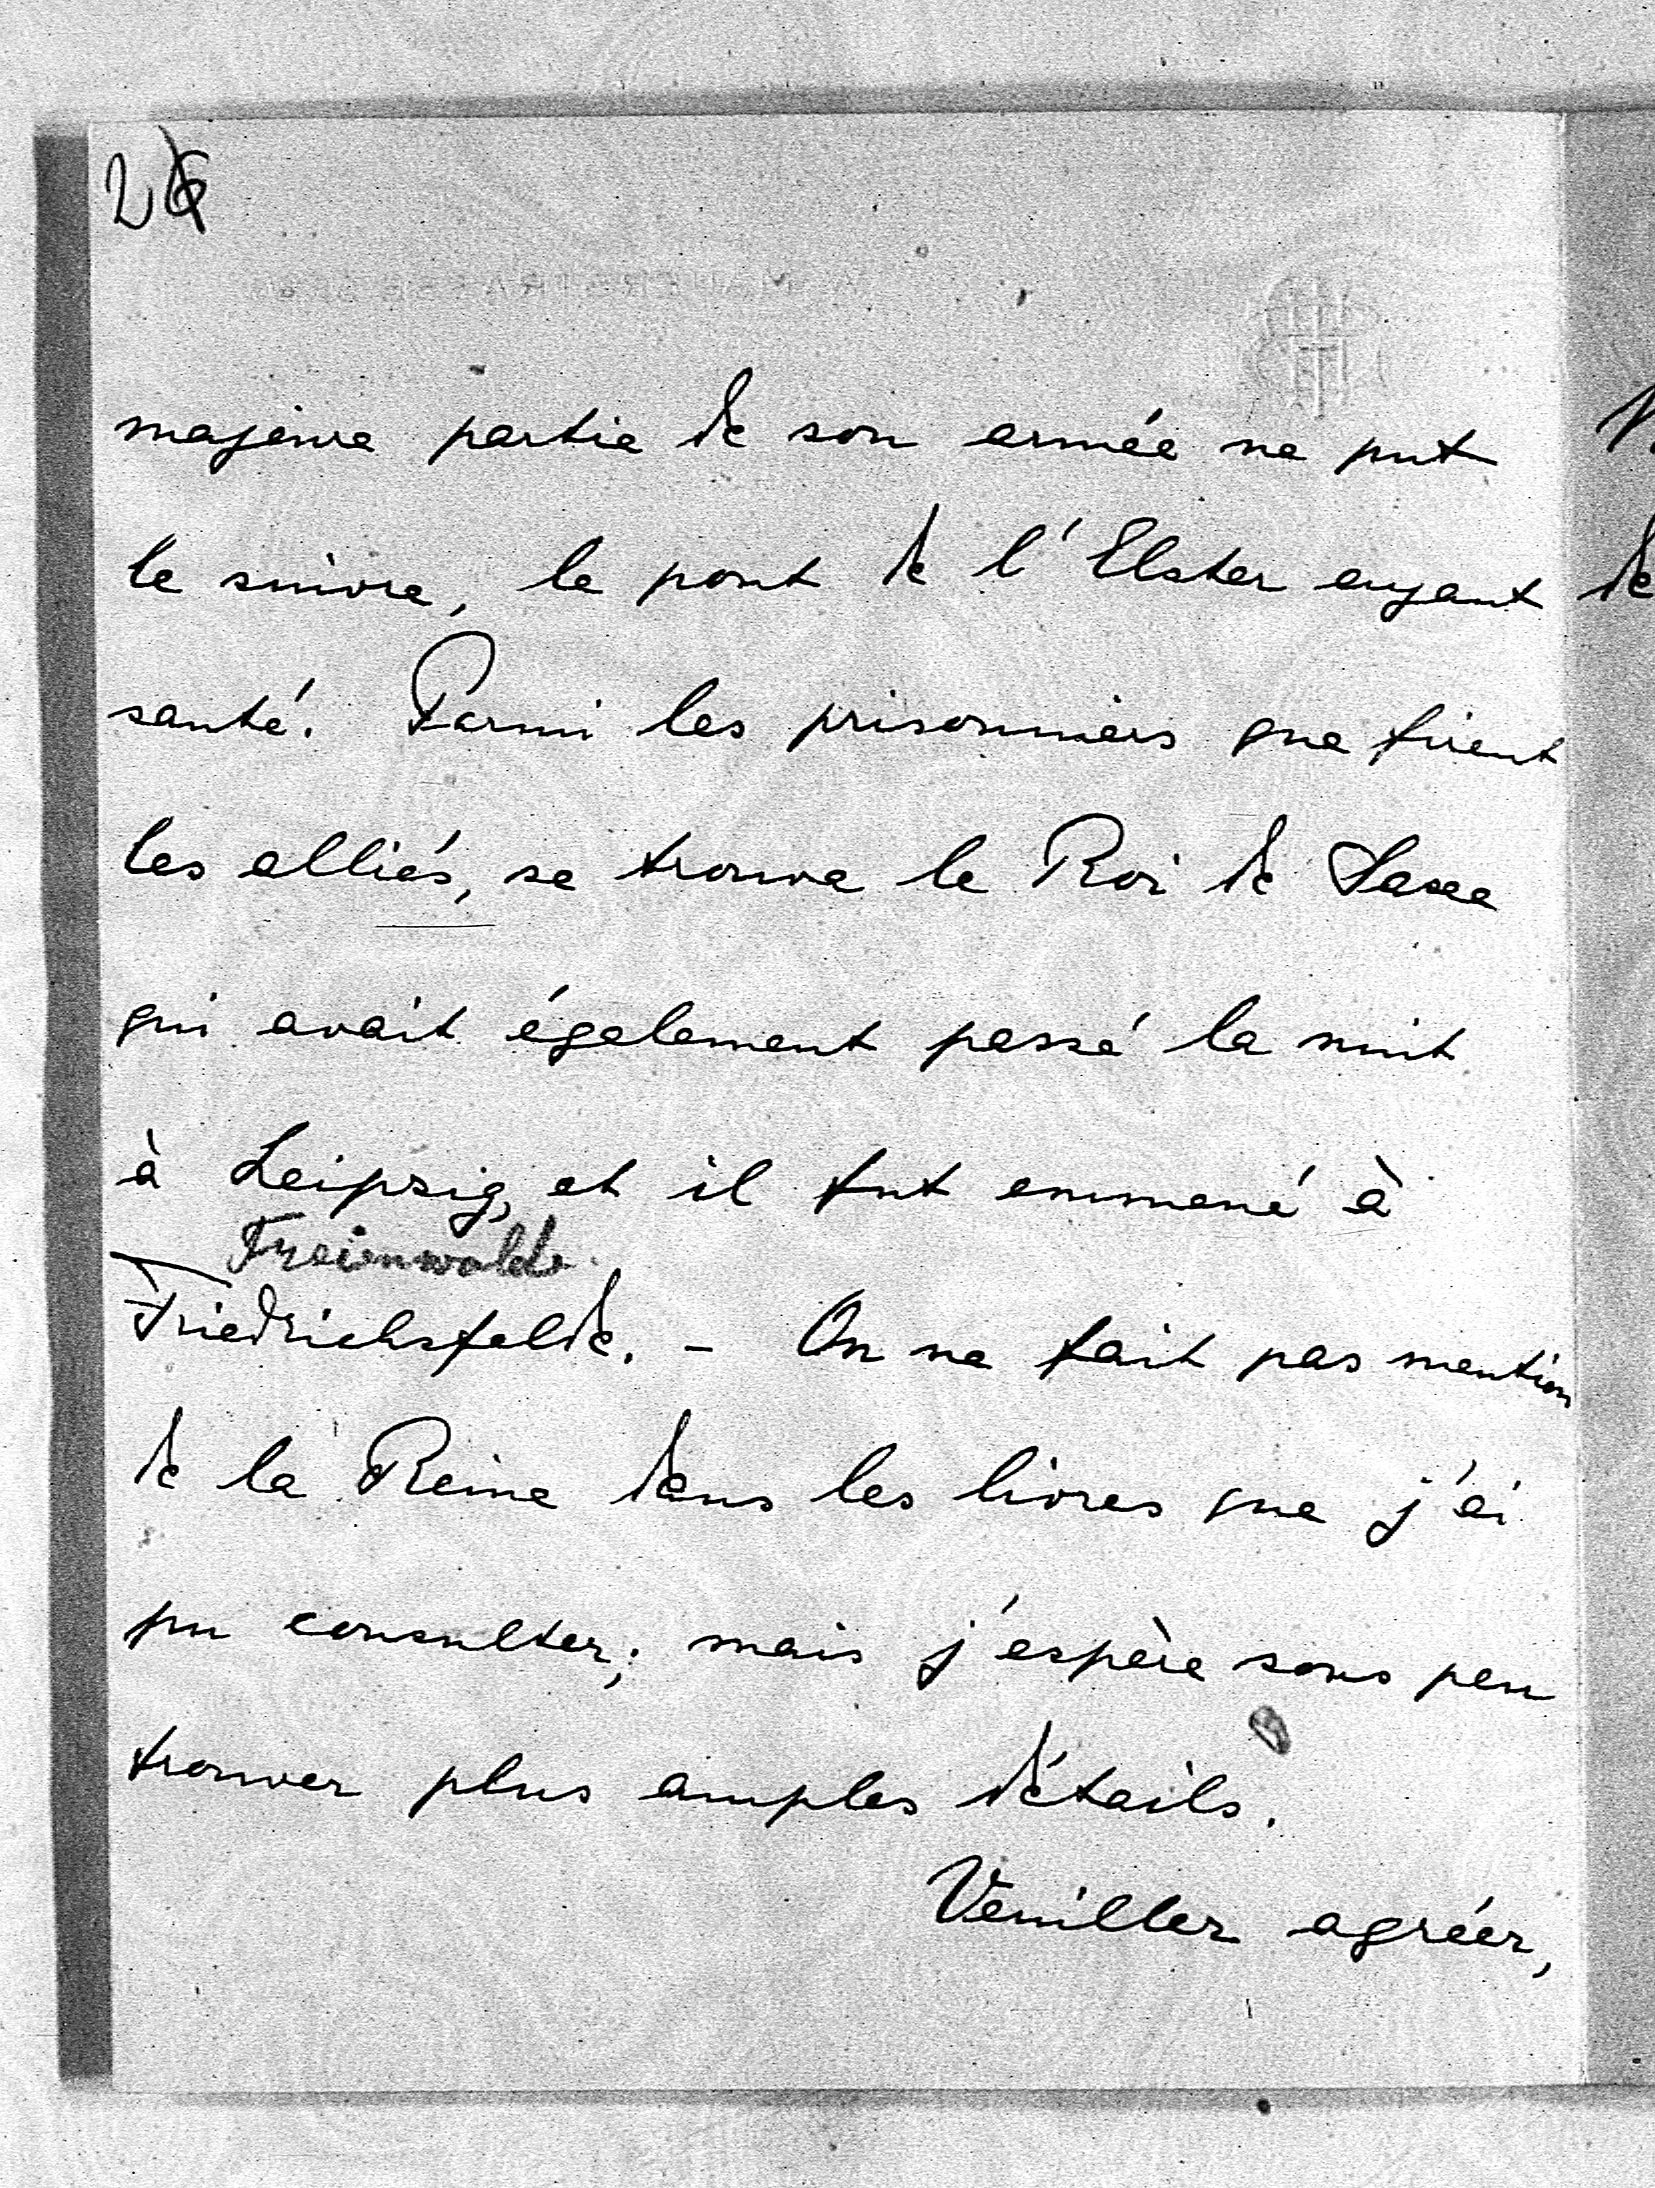 26
majeure partie de son armée ne put
le suivre, le pont de l'Elster ayant
sauté. Parmi les prisonniers que firent
les alliés, se trouva le Roi de Saxe
qui avait également passé la nuit
à Leipzig, et il fut emmené à
Freienwalde
Friedrichsfelde. - On ne fait pas mention
de la Reine dans les livres que j'ai
pu consulter; mais j'espère sous peu
trouver plus amples détails.
Veuillez agréer,